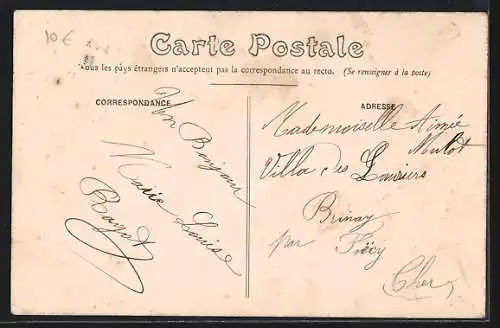 10€
Carte Postale
Tous les pays étrangers n'acceptent pas la correspondance au recto. (Se renseigner à la poste)
CORRESPONDANCE
Un Bonjour
Marie Louise
ADRESSE
Mademoiselle Aimée
Mulot
Villa des Lauriers
Brinay
par Foëcy
Cher